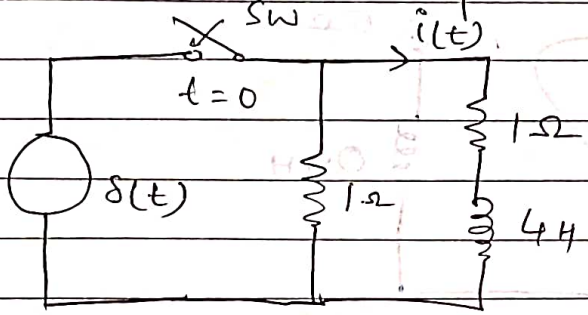 SW
i(t)
t = 0
1Ω
δ(t)
1Ω
4H